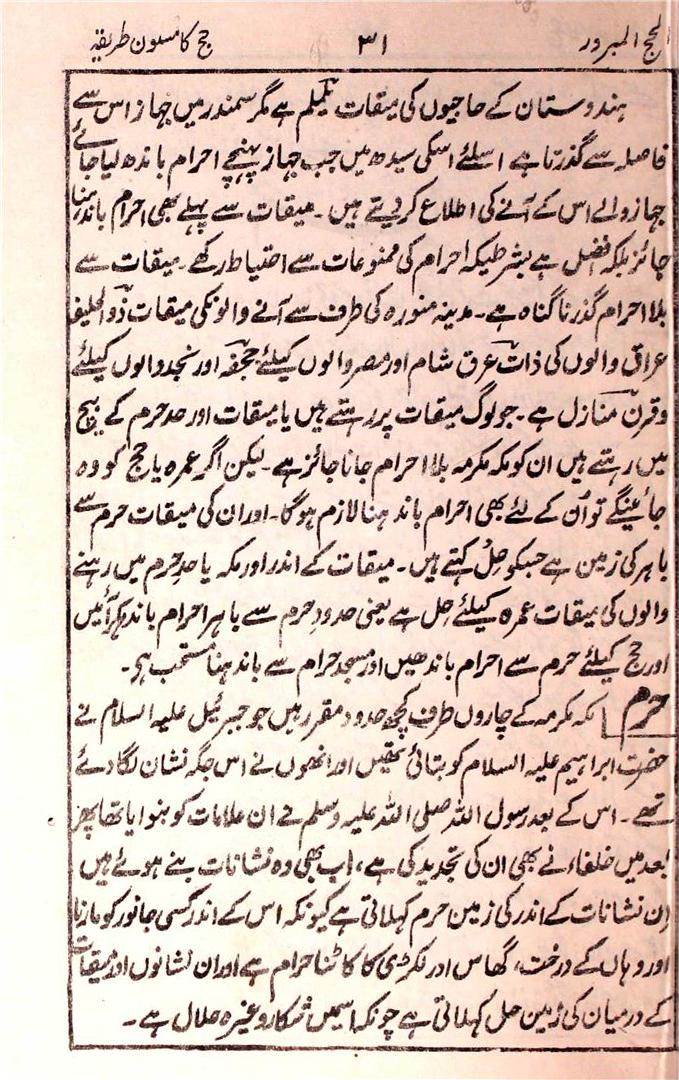 الحج المبرور ۳۱ حج کا مسنون طریقہ
ہندوستان کے حاجیوں کی میقات یلملم ہے مگر سمندر میں جہاز اس سے
فاصلہ سے گذرتا ہے اسلئے اسکی سیدھ میں جب جہاز پہنچے احرام باندھ لیا جائے
جہاز والے اس کے آنے کی اطلاع کر دیتے ہیں ۔ میقات سے پہلے بھی احرام باندہنا
جائز بلکہ افضل ہے بشرطیکہ احرام کی ممنوعات سے احتیاط رکھے ۔ میقات سے
بلا احرام گذرنا گناہ ہے ۔ مدینہ منورہ کی طرف سے آنے والونکی میقات ذوالحلیفہ
عراق والوں کی ذات عرق شام اور مصر والوں کیلئے جحفہ اور نجد والوں کیلئے
وقرن منازل ہے ۔ جو لوگ میقات پر رہتے ہیں یا میقات اور حد حرم کے بیچ
میں رہتے ہیں ان کو مکہ مکرمہ بلا احرام جانا جائز ہے ۔ لیکن اگر عمرہ یا حج کو وہ
جائینگے تو اُن کے لئے بھی احرام باندہنا لازم ہوگا ۔ اور ان کی میقات حرم سے
باہر کی زمین ہے جسکو حِل کہتے ہیں ۔ میقات کے اندر اور مکہ یا حدِ حرم میں رہنے
والوں کی میقات عمرہ کیلئے حِل ہے یعنی حدودِ حرم سے باہر احرام باندہکر آئیں
اور حج کیلئے حرم سے احرام باندھیں اور مسجد حرام سے باندہنا مستحب ہی ۔
حرم مکہ مکرمہ کے چاروں طرف کچھ حدود مقرر ہیں جو جبرئیل علیہ السلام نے
حضرت ابراہیم علیہ السلام کو بتائی تھیں اور انھوں نے اس جگہ نشان لگا دئے
تھے ۔ اس کے بعد رسول اللہ صلی اللہ علیہ وسلم نے ان علامات کو بنوایا تھا پھر
بعد میں خلفاء نے بھی ان کی تجدید کی ہے ، اب بھی وہ نشانات بنے ہوئے ہیں
اِن نشانات کے اندر کی زمین حرم کہلاتی ہے کیونکہ اس کے اندر کسی جانور کو مارنا
اور وہاں کے درخت ، گھاس اور لکڑی کا کاٹنا حرام ہے اور ان نشانوں اور میقات
کے درمیان کی زمین حل کہلاتی ہے چونکہ اسمیں شکار وغیرہ حلال ہے ۔